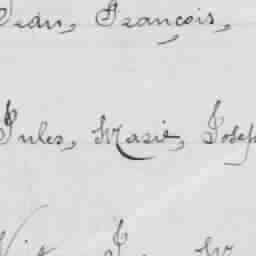 Jean, François,
Jules, Marie, Joseph